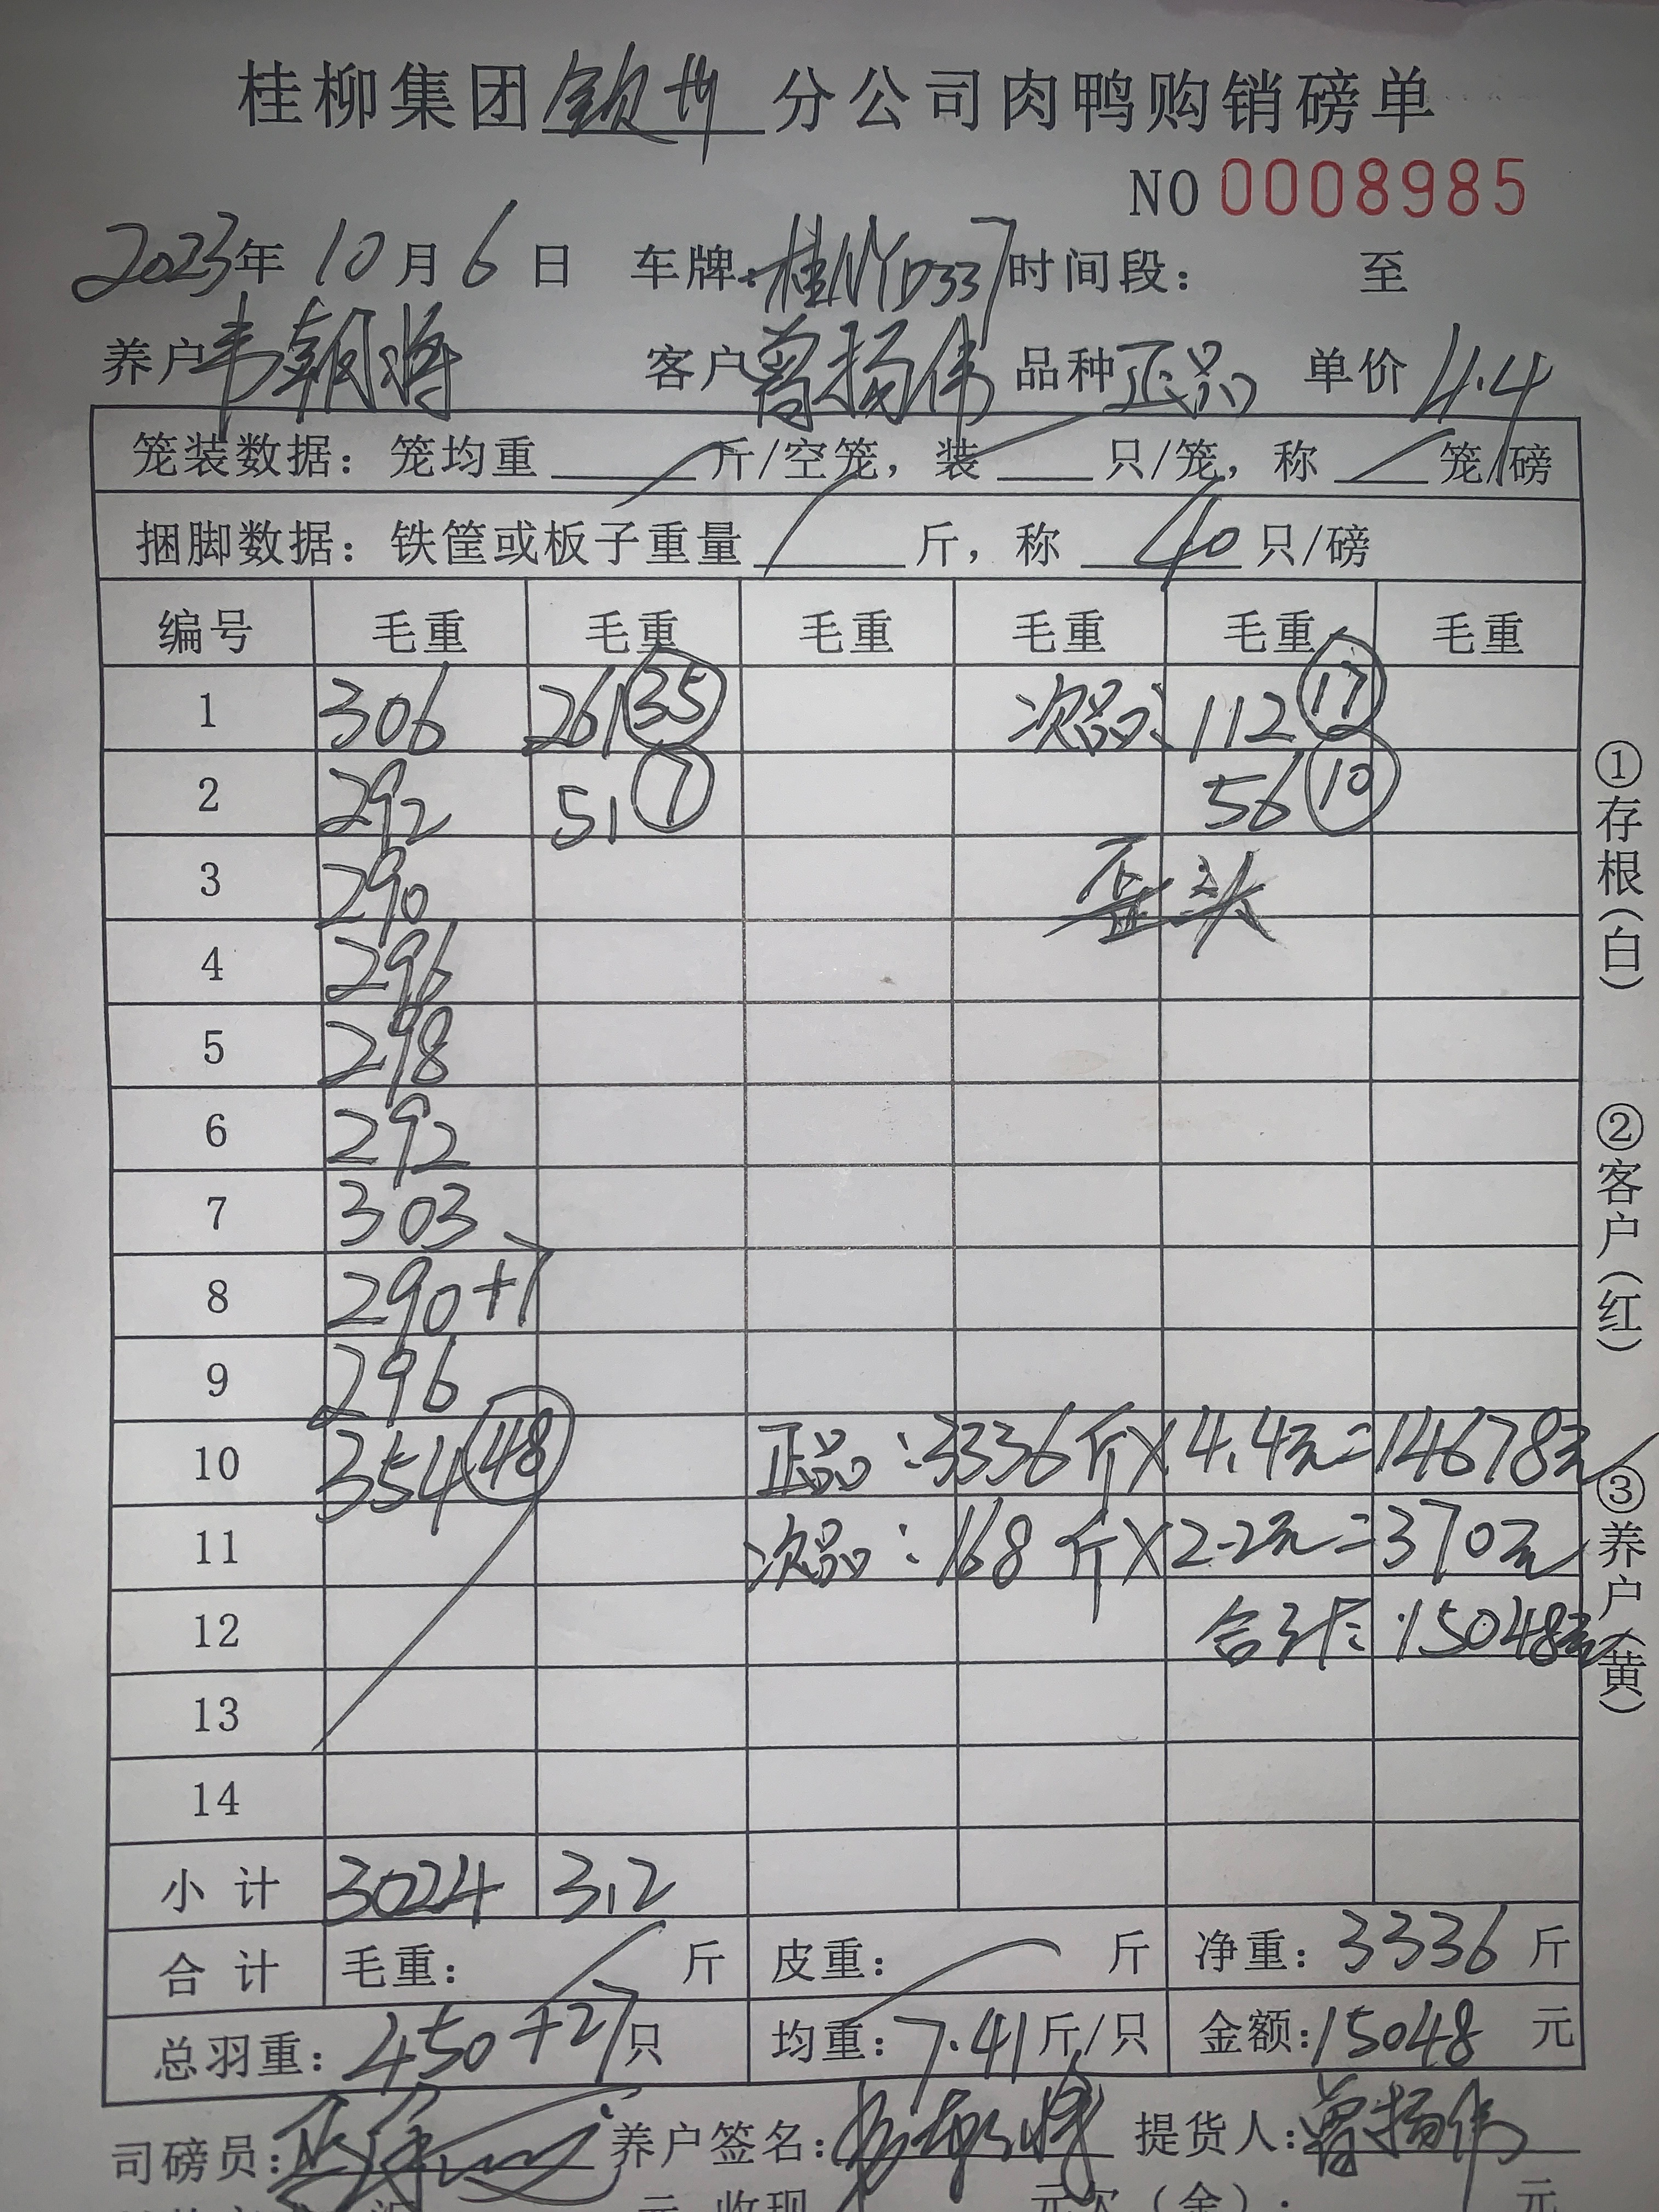 桂柳集团钦州分公司肉鸭购销磅单
NO 0008985
2023年10月6日 车牌:桂NYD337 时间段: 至
养户韦朝将 客户曾扬伟 品种正品 单价4.4
笼装数据：笼均重 斤/空笼，装 只/笼，称 笼/磅
捆脚数据：铁筐或板子重量 斤，称 40 只/磅
编号 毛重 毛重 毛重 毛重 毛重 毛重
1 306 261 35 次品: 112 17
2 292 51 7 56 10
3 290 歪头
4 296
5 298
6 292
7 303
8 290+7
9 296
10 354 48 正品:3336斤×4.4元=14678元
11 次品:168斤×2.2元=370元
12 合计:15048元
13
14
小计 3024 312
合计 毛重： 斤 皮重： 斤 净重：3336斤
总羽重：450+27只 均重：7.41斤/只 金额:15048 元
司磅员: 养户签名: 提货人:曾扬伟
①存根(白)
②客户(红)
③养户(黄)